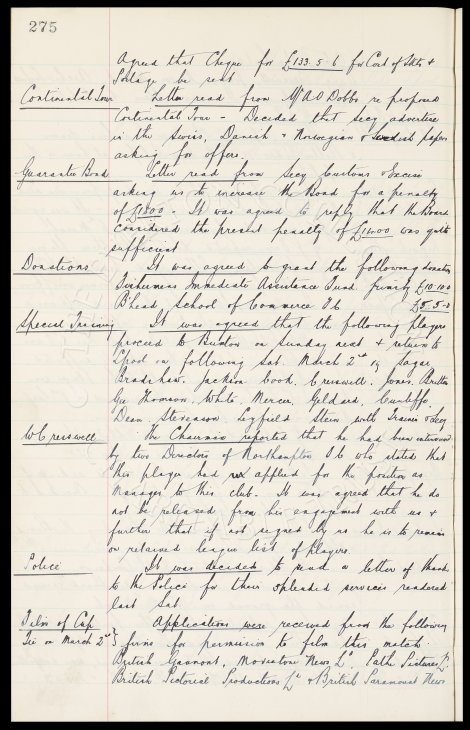 275
Agreed that Cheque for £133.5.6 for Cost of Tkts &
Postage be sent
Continental Tour Letter read from Mr A O Dobbs re proposed
Continental Tour - Decided that secy advertise
in the Swiss, Danish & Norwegian & Swedish papers
asking for offers.
Guarantee Bond Letter read from Secy Customs & Excise
asking us to increase the Bond for a penalty
of - It was agreed to reply that the Board
considered the present penalty of was quite
sufficient
Donations It was agreed to grant the following donation
Fishermens Immediate Assistance Fund. £10.10.0
B'head School of Commerce £5.5.0
Special Training It was agreed that the following players
proceed to Buxton on Sunday next & return to
Lpool on following Sat. March 2nd Sagar
Bradshaw. Jackson Cook. Cresswell. Jones. Britton
Geo Thomson. White. Mercer. Geldard. Cunliffe.
Dean. Stevenson. Leyfield. Stein with Trainer & Secy
W Cresswell The Chairman reported that he had been interviewed
by two Directors of Northampton who stated that
this player had applied for the position as
Manager to this club. It was agreed that he do
not be released from his engagement with us &
further that if not signed by us he is to remain
on retained league list of players.
Police It was decided to send a letter of thanks
to the Police for their splendid services rendered
last Sat
Films of Cup Applications were received from the following
Tie on March 2nd } firms for permission to film this match
British Gaumont, Movietone News Ld. Pathe Pictures Ld
British Pictorial Productions Ld & British Paramount News